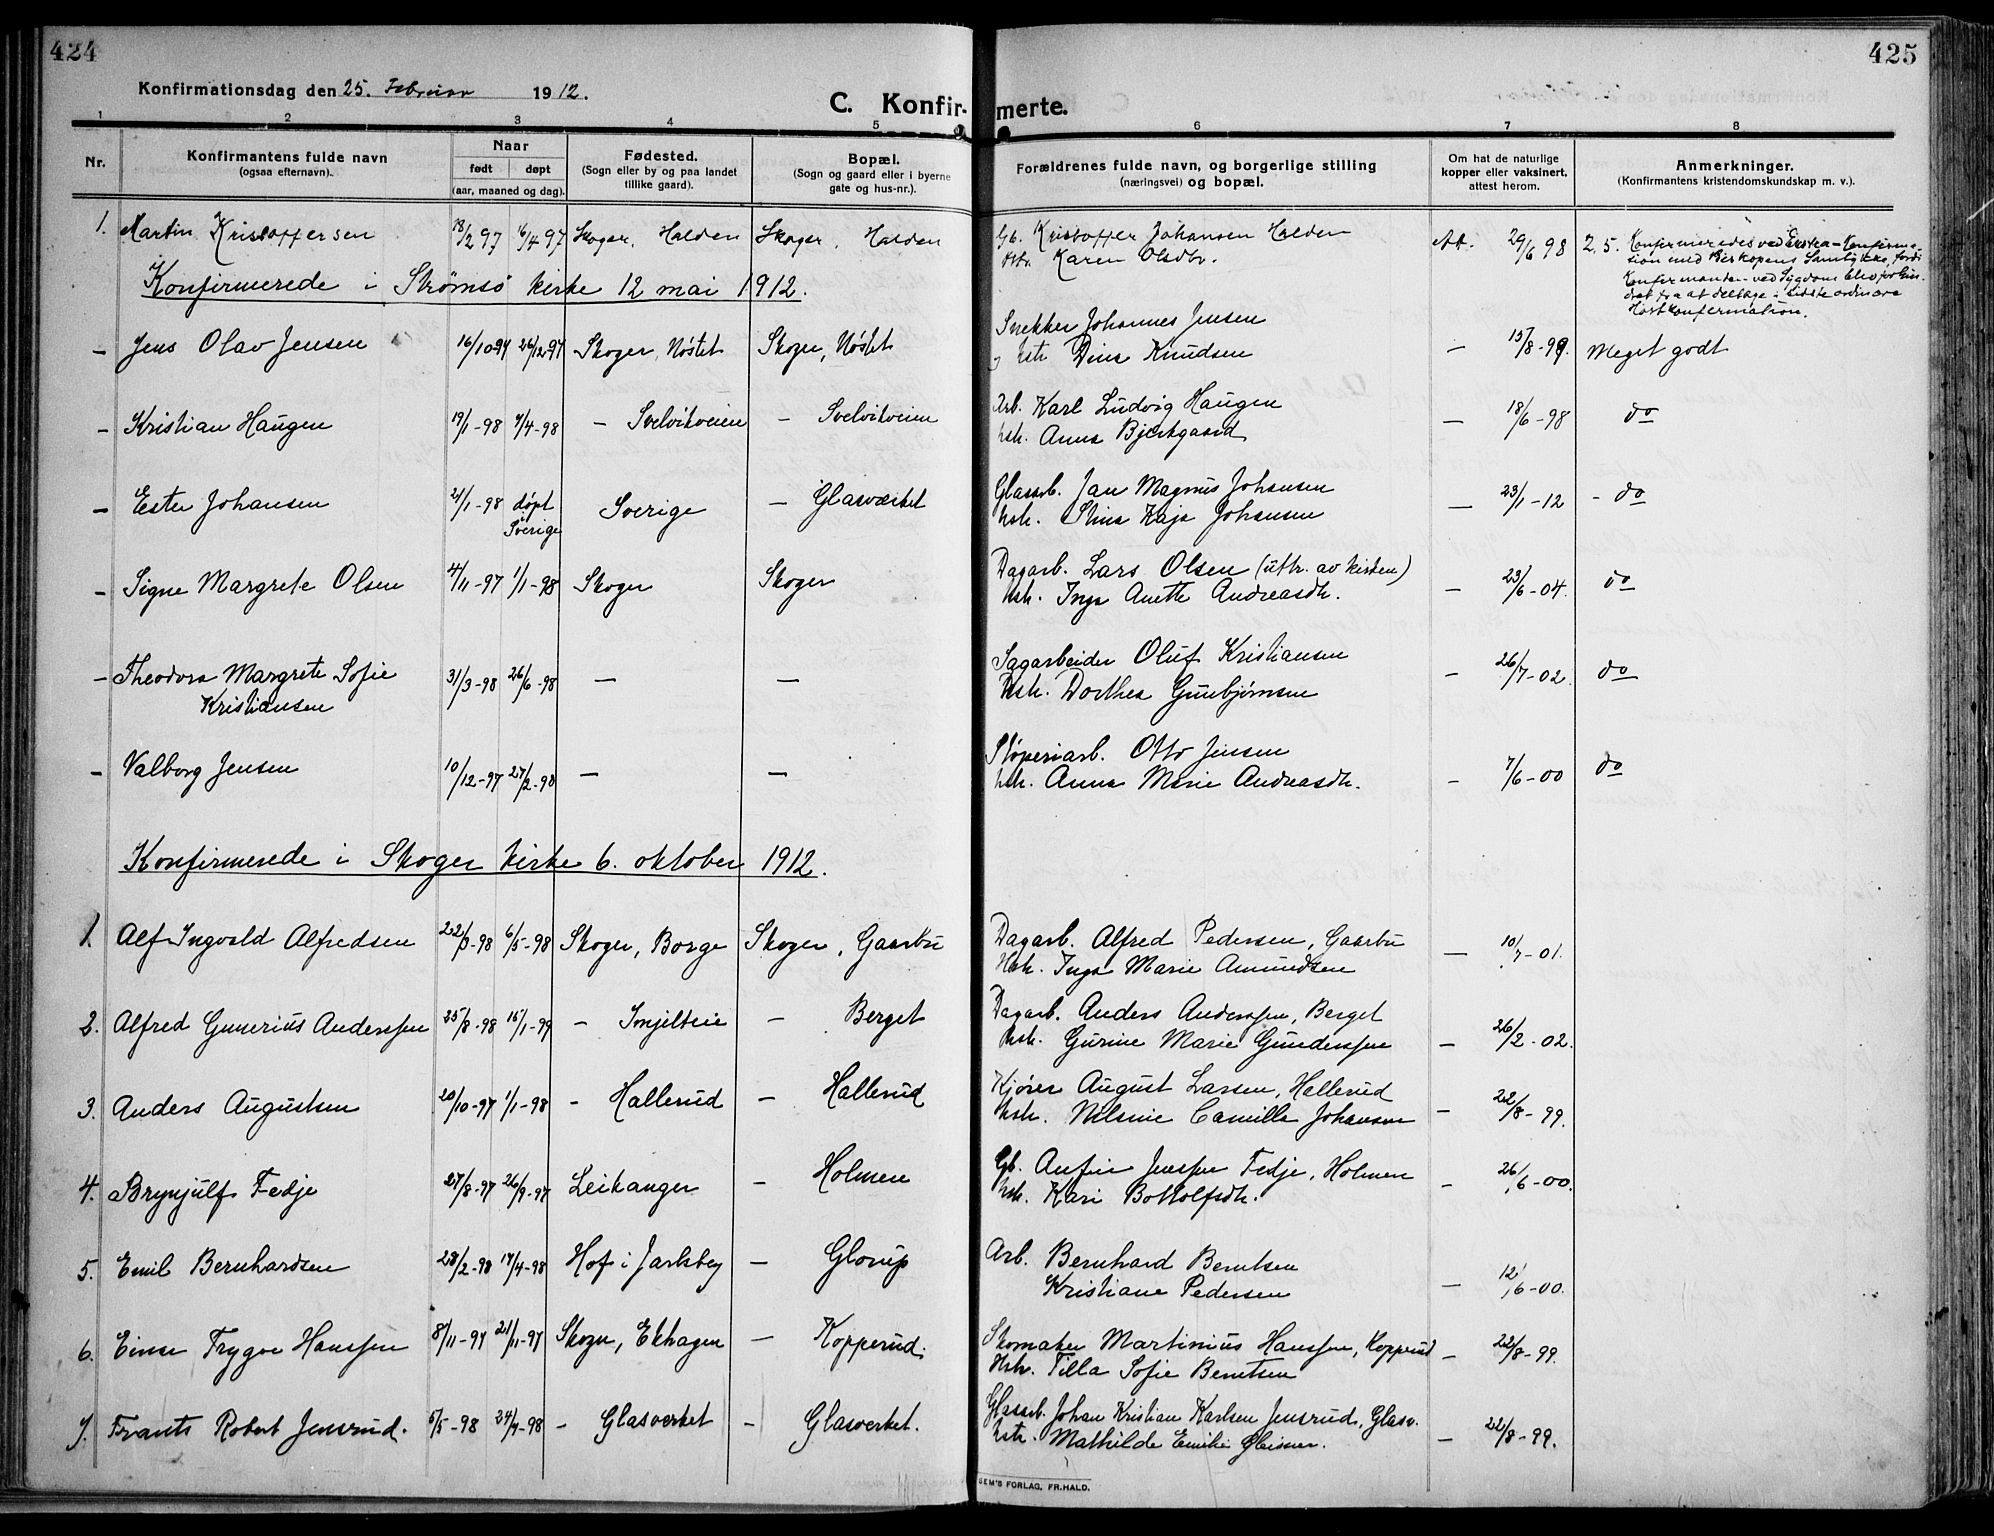 424
425
Konfirmationsdag den 25. Februar 1912.
C. Konfirmerte.
1 2 3 4 5 6 7 8
Nr.
Konfirmantens fulde navn
(ogsaa efternavn).
Naar
født døpt
(aar, maaned og dag).
Fødested.
(Sogn eller by og paa landet
tillike gaard).
Bopæl.
(Sogn og gaard eller i byerne
gate og hus-nr.).
Forældrenes fulde navn, og borgerlige stilling
(næringsvei) og bopæl.
Om hat de naturlige
kopper eller vaksinert,
attest herom.
Anmerkninger.
(Konfirmantens kristendomskundskap m. v.).
1. Martin Kristoffersen 18/2 97 16/4 97 Skoger, Halden Skoger, Halden Gb. Kristoffer Johansen Halden
Karen Olsdtr. At. 29/6 98 2.5. Konfirmeredes ved Extra-Konfirma-
sion med Biskopens Samtykke, fordi
Konfirmanden ved Sygdom blev forhin-
dret fra at deltage i sidste ordinære
Høstkonfirmation.
Konfirmerede i Strømsø kirke 12 mai 1912.
– Jens Olav Jensen 16/10-97 26/12-97 Skoger, Nøstet Skoger, Nøstet Snekker Johannes Jensen
og hstr. Dina Knudsen – 15/8-99. Meget godt
– Kristian Haugen 19/1-98 7/4-98 – Svelvikveien – Svelvikveien Arb. Karl Ludvig Haugen
hstr. Anna Bjerkgaard – 18/6-98 do
– Ester Johansen 21/1-98 døpt
Sverige Sverige – Glasværket Glasarb. Jan Magnus Johansen
hstr. Stina Kaja Johansen – 23/1-12 - do
– Signe Margrete Olsen 4/11-97 1/1-98 Skoger Skoger Dagarb. Lars Olsen (uttr. av kirken)
hstr. Inga Anette Andreasdtr. – 23/6-04. do
– Theodora Margrete Sofie
Kristiansen 31/3-98 26/6-98 – – Sagarbeider Oluf Kristiansen
hstr. Dorthea Gunbjørnsen – 26/7-02. do
– Valborg Jensen 10/12-97 27/2-98 – – Støperiarb. Otto Jensen
hstr. Anna Marie Andreasdtr. – 7/6-00 do
Konfirmerede i Skoger kirke 6. oktober 1912.
1. Alf Ingvald Alfredsen 22/3-98 6/5-98 Skoger, Borge Skoger, Gaarbu Dagarb. Alfred Pedersen, Gaarbu
Hstr. Inga Marie Amundsen – 10/7-01.
2. Alfred Gunerius Anderssen 25/8-98 15/1-99 – Smjilteie – Berget Dagarb. Anders Anderssen, Berget
hstr. Gurine Marie Gunderssen – 26/2-02.
3. Anders Augustsen 20/10-97 1/1-98 - Hallerud – Hallerud Kjører August Larsen, Hallerud
hstr. Nilsine Camilla Johansen – 22/8-99.
4. Brynjulf Fedje 27/8-97 26/9-97 Leikanger – Holmen Gb. Anfin Jenssen Fedje, Holmen
hstr. Kari Bottolfsdtr. – 26/6-00.
5. Emil Bernhardsen 28/2-98 17/4-98 Hof i Jarlsberg – Glorup Arb. Bernhard Berntsen
Kristiane Pedersen – 12/6-00.
6. Einar Trygve Hanssen 8/11-97 21/11-97 Skoger, Ekhagen – Kopperud. Skomaker Martinius Hanssen, Kopperud
Hstr. Tilla Sofie Berntsen – 22/8-99.
7. Frants Robert Jensrud. 5/5-98 24/7-98 – Glasverket – Glasverket. Glasarb. Johan Kristian Karlsen Jensrud, Glasv.
hstr. Mathilde Emilie Gleisner. – 22/8-99.
SEM'S FORLAG, FR.HALD.